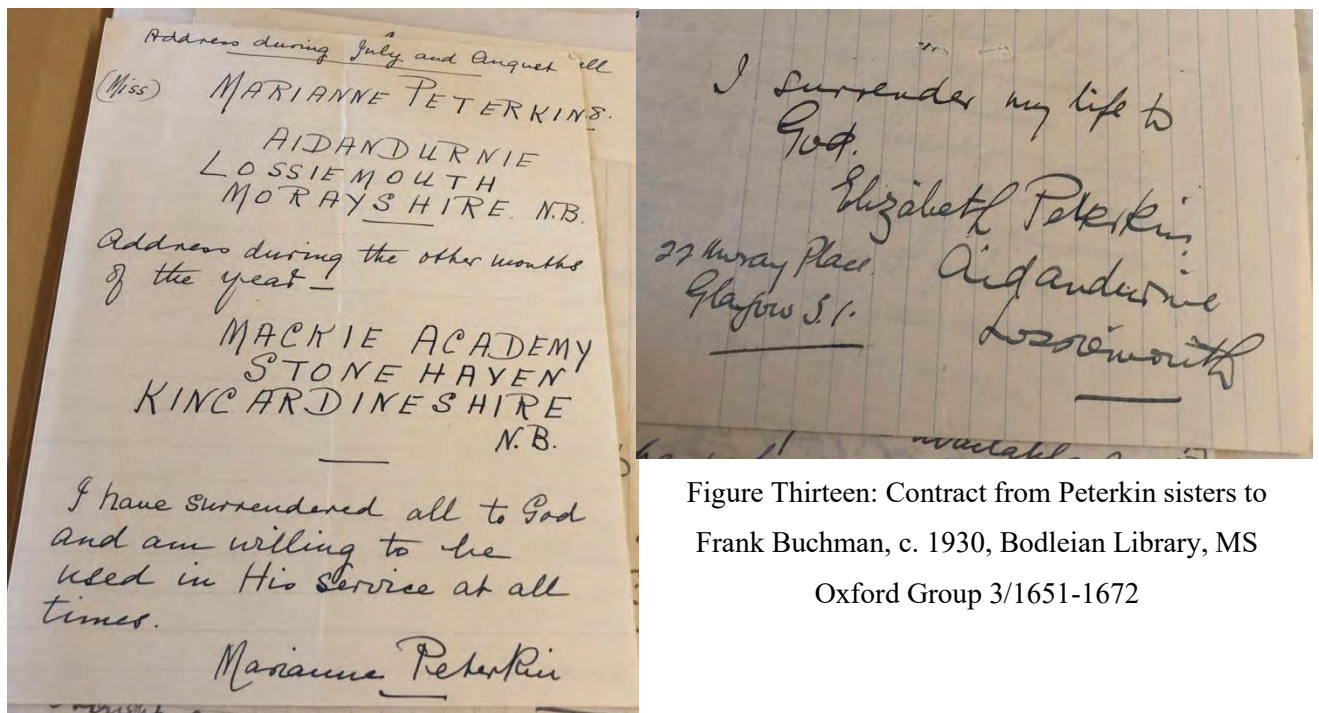 Address during July and August
(Miss) MARIANNE PETERKIN
AIDANDURNIE
LOSSIEMOUTH
MORAYSHIRE. N.B.
Address during the other months
of the year —
MACKIE ACADEMY
STONEHAVEN
KINCARDINESHIRE
N.B.
I have surrendered all to God
and am willing to be
used in His service at all
times.
Marianne Peterkin
I surrender my life to
God.
Elizabeth Peterkin
Aidandurnie
Lossiemouth
27 Moray Place
Glasgow S.1.
available
Figure Thirteen: Contract from Peterkin sisters to
Frank Buchman, c. 1930, Bodleian Library, MS
Oxford Group 3/1651-1672